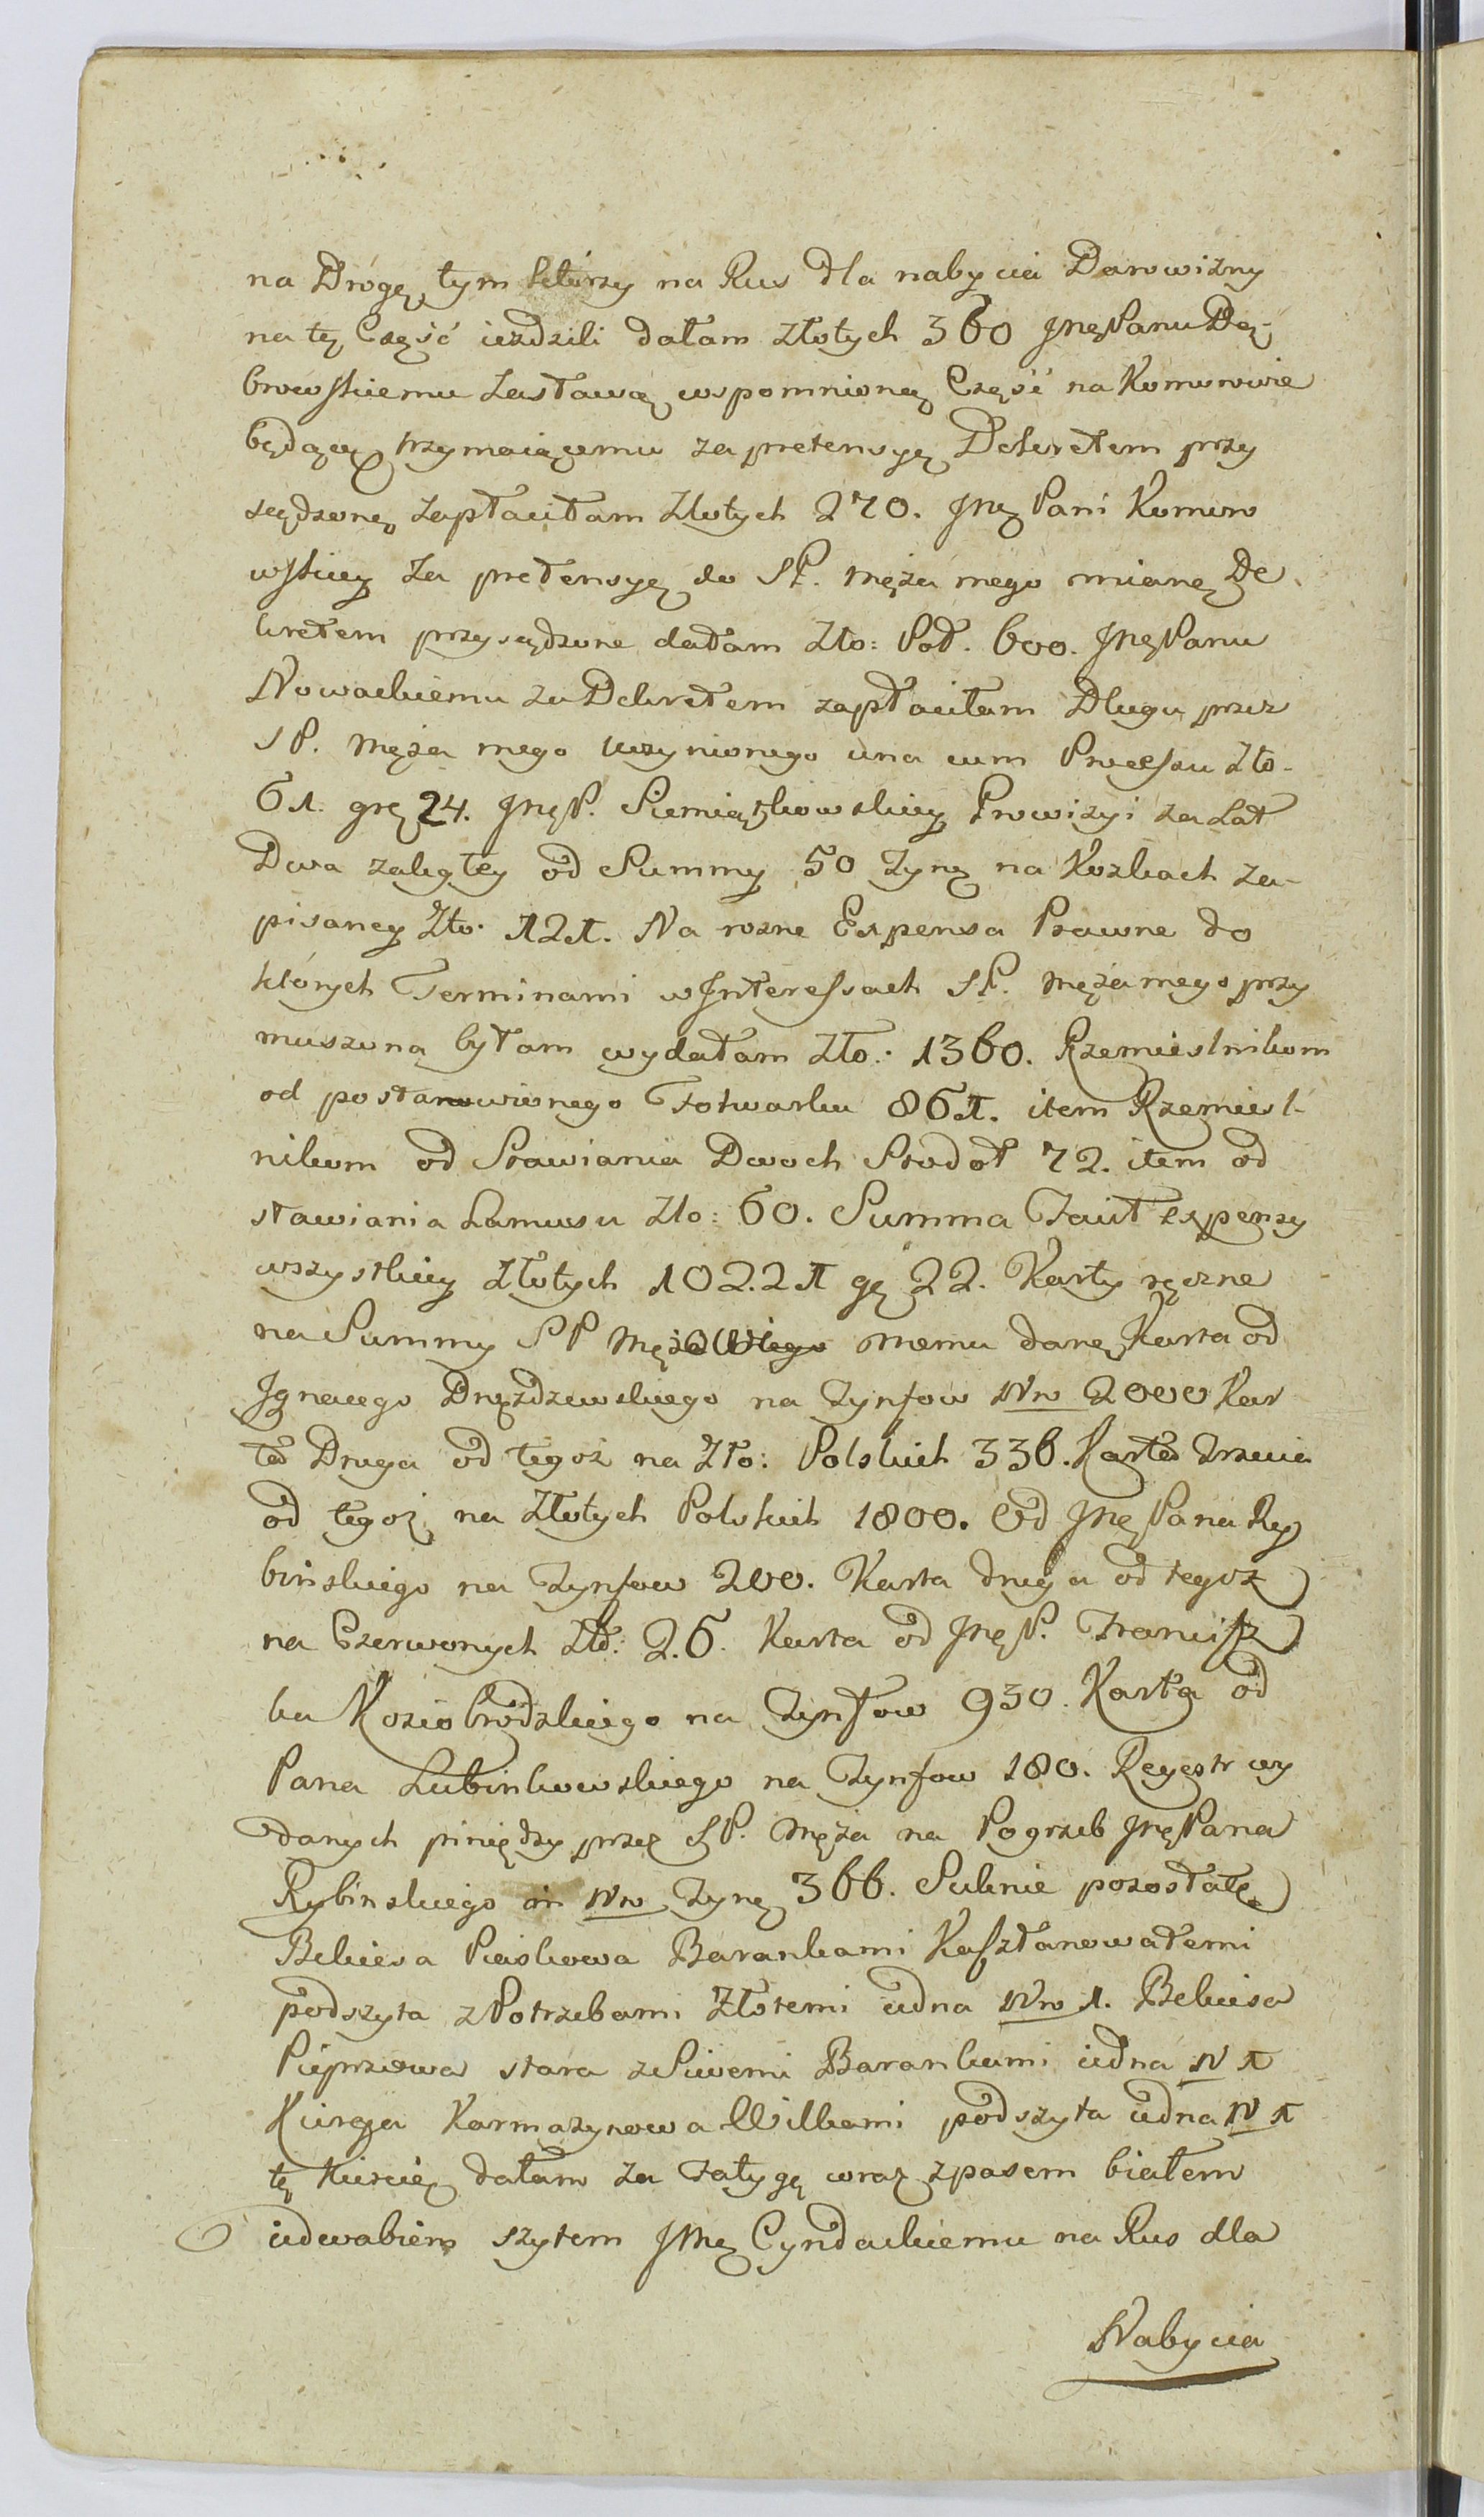 na Drogę tym którzy na Rus dla nabycia Darowizny
na tę Część iezdzili dałam złotych 360 Jmę Panu Dą-
browskiemu zastawą wspomnioną Część na Komorowie
będącą trzymaiącemu za pretensyę Dekretem przy
sądzoną zapłaciłam złotych 270. Jmę Pani Komoro
wskiey za pretensyę do SP. męża mego mianą De
kretem przysądzone dałam Zło: Pol. 600. Jmę Panu
Nowackiemu za Dekretem zapłaciłam Długu przez
SP. męża mego uczynionego una cum Processu Zło.
61. grę 24. Jmę P. Siemiątkowskiey Prowizyi za Lat
Dwa zaległey od Summy 50 Tynę na Kozkach za-
pisaney Zło. 121. Na rozne Expensa Prawne do
których Terminami w Interessach SP. męża mego przy
muszona byłam wydałam Zło: 1360. Rzemieslnikom
od postanowionego Folwarku 861. item Rzemiesl-
nikom od Stawiania Dwoch Stodoł 72. item od
stawiania Lamusu Zło: 60. Summa Facit expensy
wszystkiey Złotych 10221 gę 22. Karty ręczne
na Summy SP Mężowi memu danę Karta od
Ignacego Drężdzewskiego na Tynfow Nro 2000 Kar
ta Druga od tegoż na Zło: Polskich 336. Karta Trzecia
od tegoż na Złotych Polskich 1800. Od Jmę Pana Ry
binskiego na Tynfow 200. Karta druga od tegoz
na Czerwonych Zło: 26. Karta od Jmę P. Francisz
ka Koziebrodzkiego na Tynfow 930. Karta od
Pana Lubinkowskiego na Tynfow 180. Regestr wy
danych piniędzy przez SP. męża na Pogrzeb Jmę Pana
Rybinskiego in Nro Tynę 366. Suknie pozostałe
Bekiesa Piaskowa Barankami Kasztanowatemi
podszyta z Potrzebami Złotemi iedna Nro 1. Bekiesa
Pieprzowa stara z Siwemi Barankami iedna N 1
Kireja Karmazynowa Wilkami podszyta iedna N 1
tę Kireię dałam za Fatygę wraz z pasem białem
iedwabiem szytem Jmę Cyndackiemu na Rus dla
Nabycia